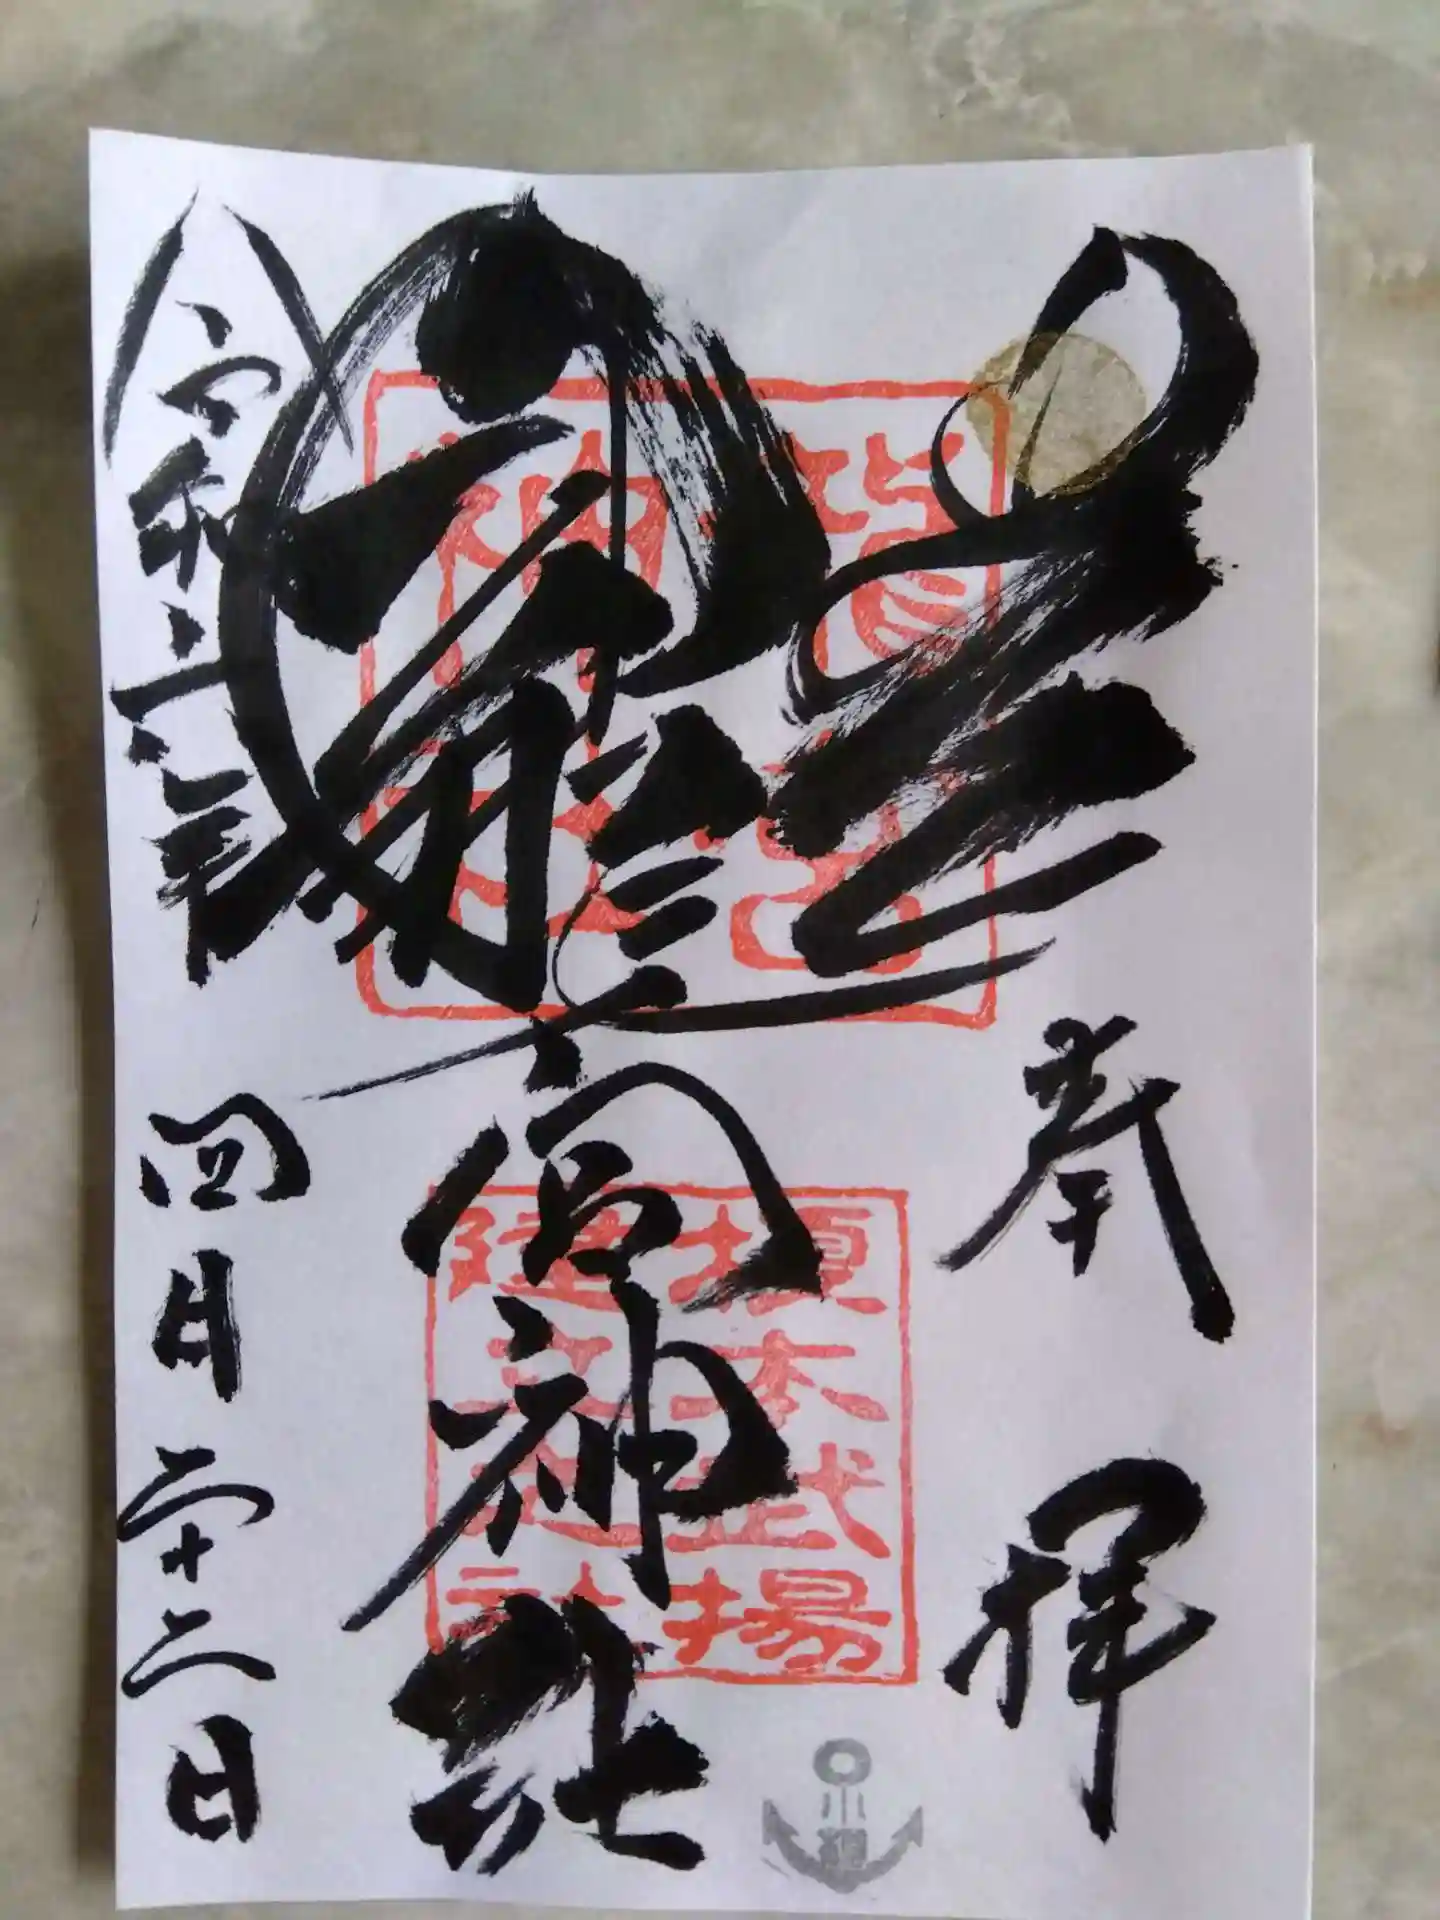 奉拝
龍宮神社
令和六年四月二十二日
龍宮
神社
榎本武揚
建立之社